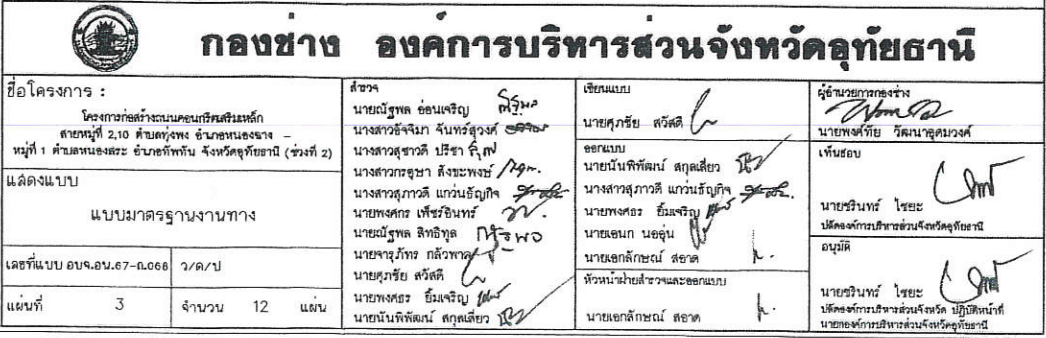 กองช่าง องค์การบริหารส่วนจังหวัดอุทัยธานี
ชื่อโครงการ :
โครงการก่อสร้างถนนคอนกรีตเสริมเหล็ก
สายหมู่ที่ 2,10 ตำบลทุ่งพง อำเภอหนองฉาง –
หมู่ที่ 1 ตำบลหนองสระ อำเภอทัพทัน จังหวัดอุทัยธานี (ช่วงที่ 2)
แสดงแบบ
แบบมาตรฐานงานทาง
เลขที่แบบ อบจ.อน.67-ถ.068 ว/ด/ป
แผ่นที่ 3 จำนวน 12 แผ่น
สำรวจ
นายณัฐพล อ่อนเจริญ
นางสาวอัจจิมา จันทร์สุวงศ์
นางสาวสุชาวดี ปรีชา
นางสาวกรชุษา สังขะพงษ์
นางสาวสุภาวดี แกว่นธัญกิจ
นายพงศกร เพ็ชรอินทร์
นายณัฐพล สิทธิทูล
นายจารุภัทร กลัวพาล
นายศุภชัย สวัสดี
นายพงศธร ยิ้มเจริญ
นายนันพิพัฒน์ สกุลเสี่ยว
เขียนแบบ
นายศุภชัย สวัสดี
ออกแบบ
นายนันพิพัฒน์ สกุลเสี่ยว
นางสาวสุภาวดี แกว่นธัญกิจ
นายพงศธร ยิ้มเจริญ
นายเอนก นออุ่น
นายเอกลักษณ์ สอาด
หัวหน้าฝ่ายสำรวจและออกแบบ
นายเอกลักษณ์ สอาด
ผู้อำนวยการกองช่าง
นายพงศ์ทัย วัฒนาอุดมวงศ์
เห็นชอบ
นายชรินทร์ ไชยะ
ปลัดองค์การบริหารส่วนจังหวัดอุทัยธานี
อนุมัติ
นายชรินทร์ ไชยะ
ปลัดองค์การบริหารส่วนจังหวัด ปฏิบัติหน้าที่
นายกองค์การบริหารส่วนจังหวัดอุทัยธานี